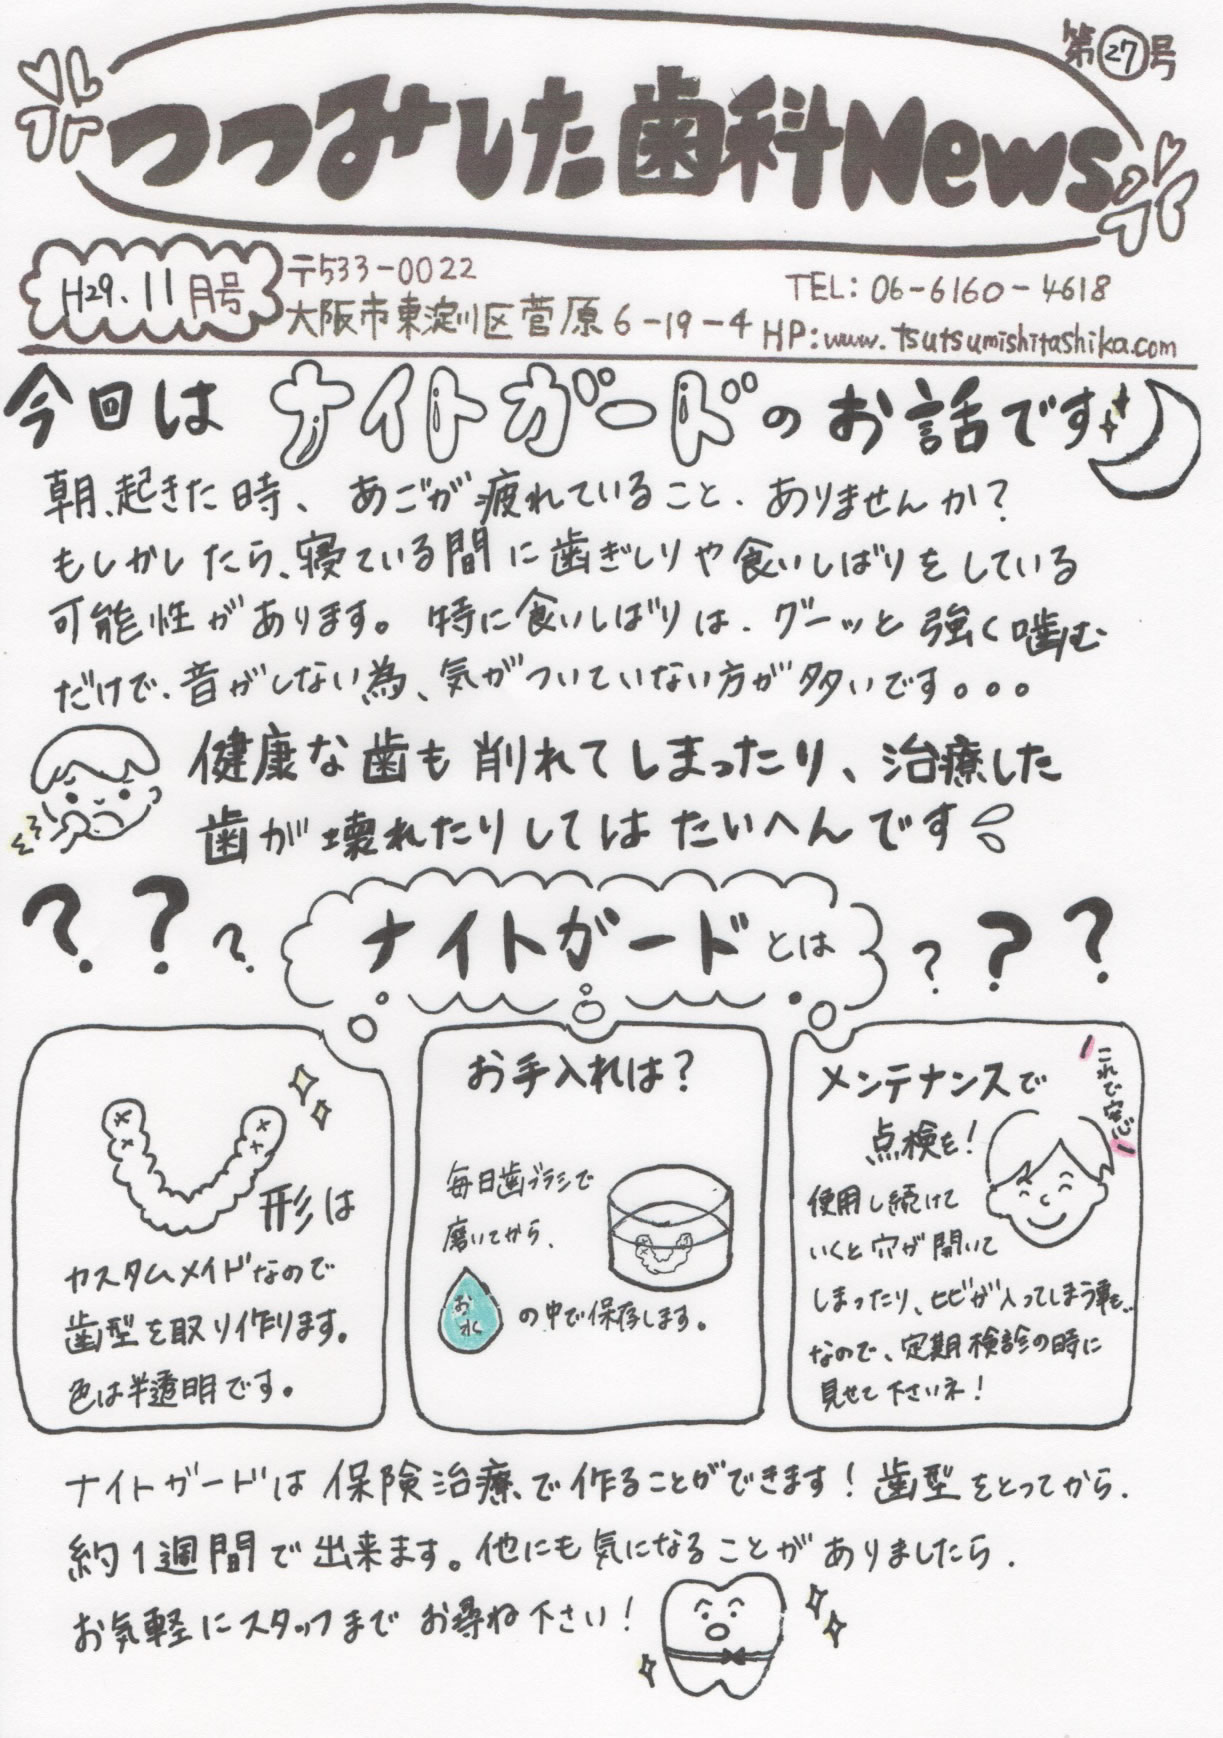 第㉗号
つつみした歯科News
H29.11月号
〒533-0022
大阪市東淀川区菅原6-19-4
TEL:06-6160-4618
HP:www.tsutsumishitashika.com
今回はナイトガードのお話です
朝、起きた時、あごが疲れていること、ありませんか?
もしかしたら、寝ている間に歯ぎしりや食いしばりをしている
可能性があります。特に食いしばりは、グーッと強く噛む
だけで、音がしない為、気がついていない方が多いです。。。
健康な歯も削れてしまったり、治療した
歯が壊れたりしてはたいへんです
? ? ?
ナイトガードとは
? ? ?
形は
カスタムメイドなので
歯型を取り作ります。
色は半透明です。
お手入れは?
毎日歯ブラシで
磨いてから、
お水
の中で保存します。
メンテナンスで
点検を!
これで安心
使用し続けて
いくと穴が開いて
しまったり、ヒビが入ってしまう事も、
なので、定期検診の時に
見せて下さいネ!
ナイトガードは保険治療で作ることができます!歯型をとってから、
約1週間で出来ます。他にも気になることがありましたら、
お気軽にスタッフまでお尋ね下さい!